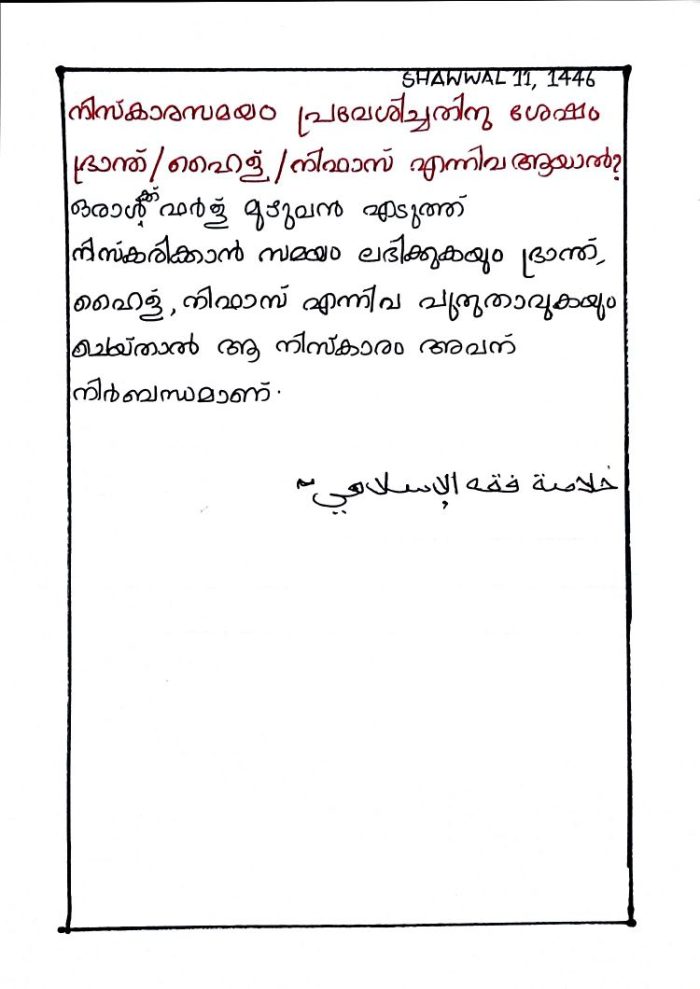 SHAWWAL 11, 1446
നിസ്കാരസമയം പ്രവേശിച്ചതിനു ശേഷം
ഭ്രാന്ത്/ഹൈള്/നിഫാസ് എന്നിവ ആയാൽ?
ഒരാൾക്ക് ഫർള് മുഴുവൻ എടുത്ത്
നിസ്കരിക്കാൻ സമയം ലഭിക്കുകയും ഭ്രാന്ത്,
ഹൈള്, നിഫാസ് എന്നിവ പുതുതാവുകയും
ചെയ്താൽ ആ നിസ്കാരം അവന്
നിർബന്ധമാണ്.
خلاصة فقه الإسلامي~